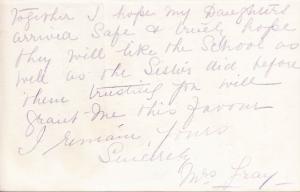 together I hope my Daughters
arrived Safe & truly hope
they will like the School as
well as the Sisters did before
them trusting you will
grant Me this favour
I remain, Yours
Sincerely
Mrs Gray